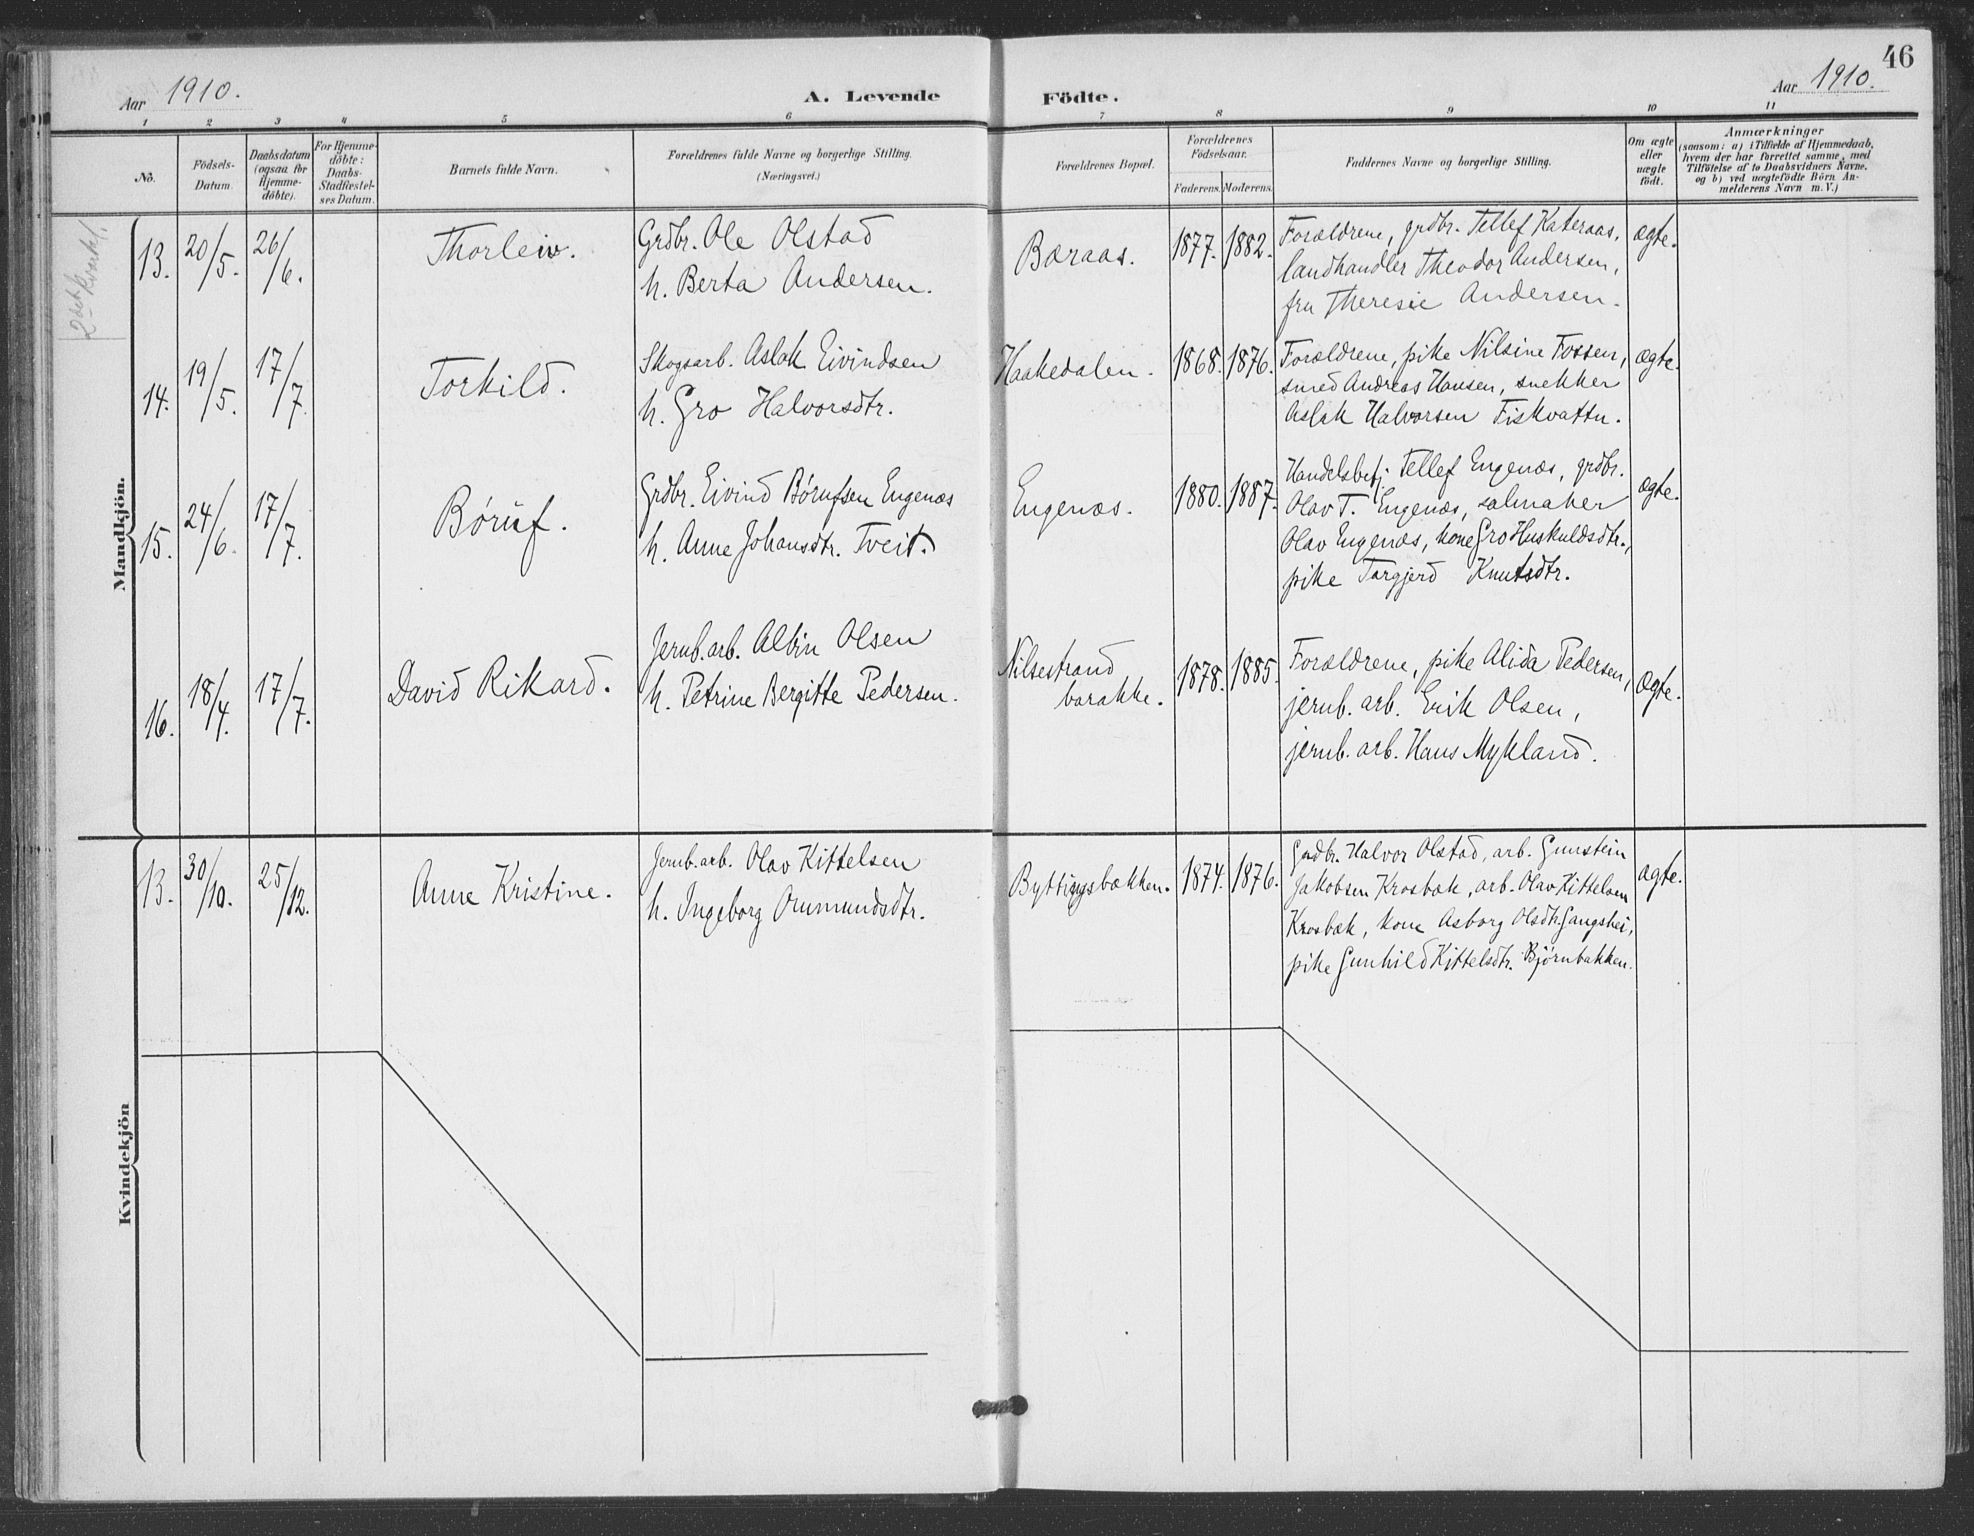 46
Aar 1910. A. Levende Födte. Aar 1910.
1 2 3 4 5 6 7 8 9 10 11
No.
Födsels-
Datum.
Daabsdatum
(ogsaa for
Hjemme-
döbte).
For Hjemme-
döbte:
Daabs-
Stadfæstel-
ses Datum.
Barnets fulde Navn.
Forældrenes fulde Navne og borgerlige Stilling.
(Næringsvei.)
Forældrenes Bopæl.
Forældrenes
Födselsaar.
Faderens. Moderens.
Faddernes Navne og borgerlige Stilling.
Om ægte
eller
uægte
født.
Anmærkninger
(saasom: a) i Tilfælde af Hjemmedaab,
hvem der har forrettet samme, med
Tilföielse af to Daabsvidners Navne,
og b) ved uægtefödte Börn An-
melderens Navn m. V.)
Mandkjön.
13. 20/5. 26/6. Thorleiv.
Grdbr. Ole Olstad
h. Berta Andersen.
Bæraas. 1877. 1882.
Forældrene, grdbr. Tellef Kateraas,
landhandler Theodor Andersen,
fru Theresie Andersen.
ægte.
14. 19/5. 17/7. Torkild.
Skogsarb. Aslak Eivindsen
h. Gro Halvorsdtr.
Haakedalen. 1868. 1876.
Forældrene, pike Nilsine Fossen,
smed Andreas Hansen, snekker
Aslak Halvorsen Fiskvattn.
ægte.
15. 24/6. 17/7. Børuf.
Grdbr. Eivind Børufsen Engenæs
h. Anne Johansdtr. Tveit.
Engenæs. 1880. 1887.
Handelsbetj. Tellef Engenæs, grdbr.
Olav T. Engenæs, salmaker
Olav Engenæs, kone Gro Huskuldsdtr.,
pike Torgjerd Knutsdtr.
ægte.
16. 18/4. 17/7. David Rikard.
Jernb. arb. Albin Olsen
h. Petrine Bergitte Pedersen.
Nilsestrand
barakke.
1878. 1885.
Forældrene, pike Alida Pedersen,
jernb. arb. Erik Olsen,
jernb. arb. Hans Mykland.
ægte.
Kvindekjön
13. 30/10. 25/12. Anne Kristine.
Jernb. arb. Olav Kittelsen
h. Ingeborg Ommundsdtr.
Byttingsbækken. 1874. 1876.
Grdbr. Halvor Olstad, arb. Gunstein
Jakobsen Krosbæk, arb. Olav Kittelsen
Krosbæk, kone Asborg Olsdtr. Gangshei,
pike Gunhild Kittelsdtr. Bjørnbakken.
ægte.